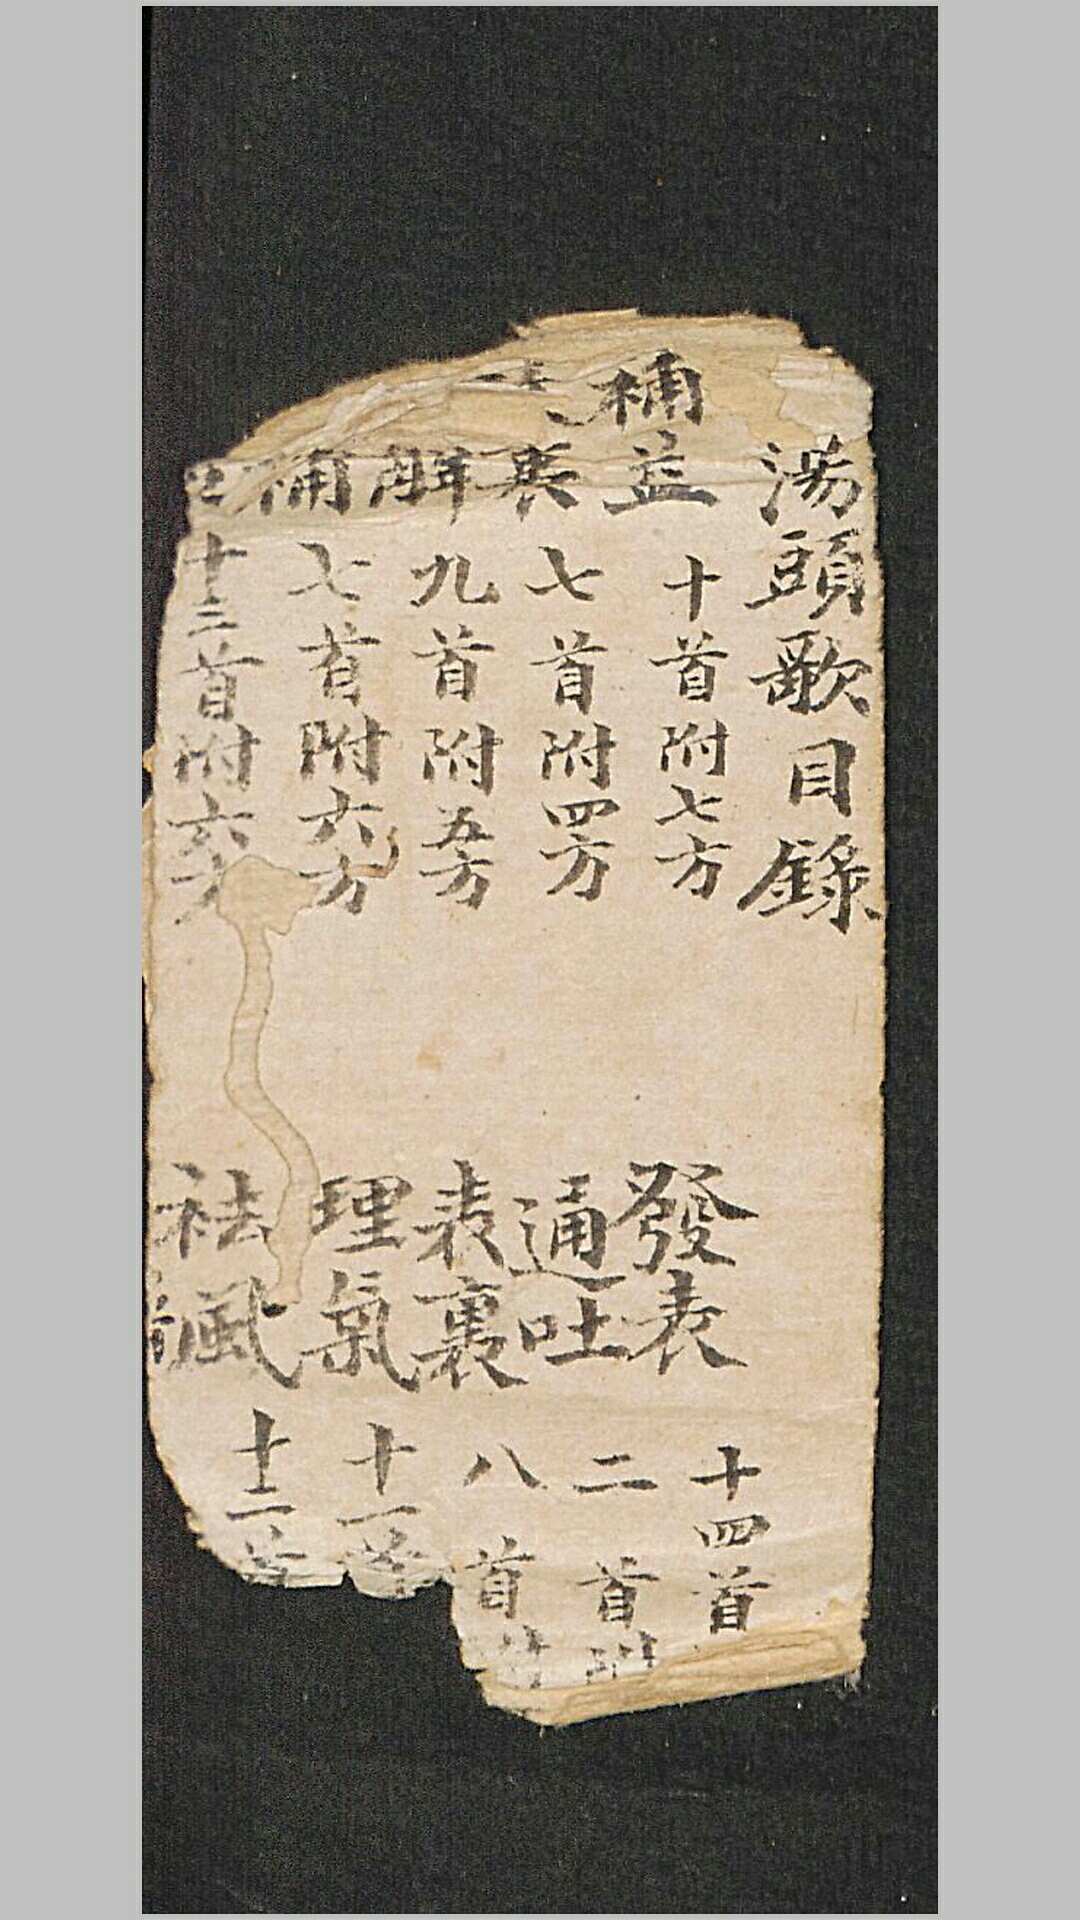 湯頭歌目錄
補益 十首附七方 發表 十四首
裏 七首附四方 通吐 二首附
解 九首附五方 表裏 八首
補 七首附六方 理氣 十一首
十三首附六方 祛風 十二首